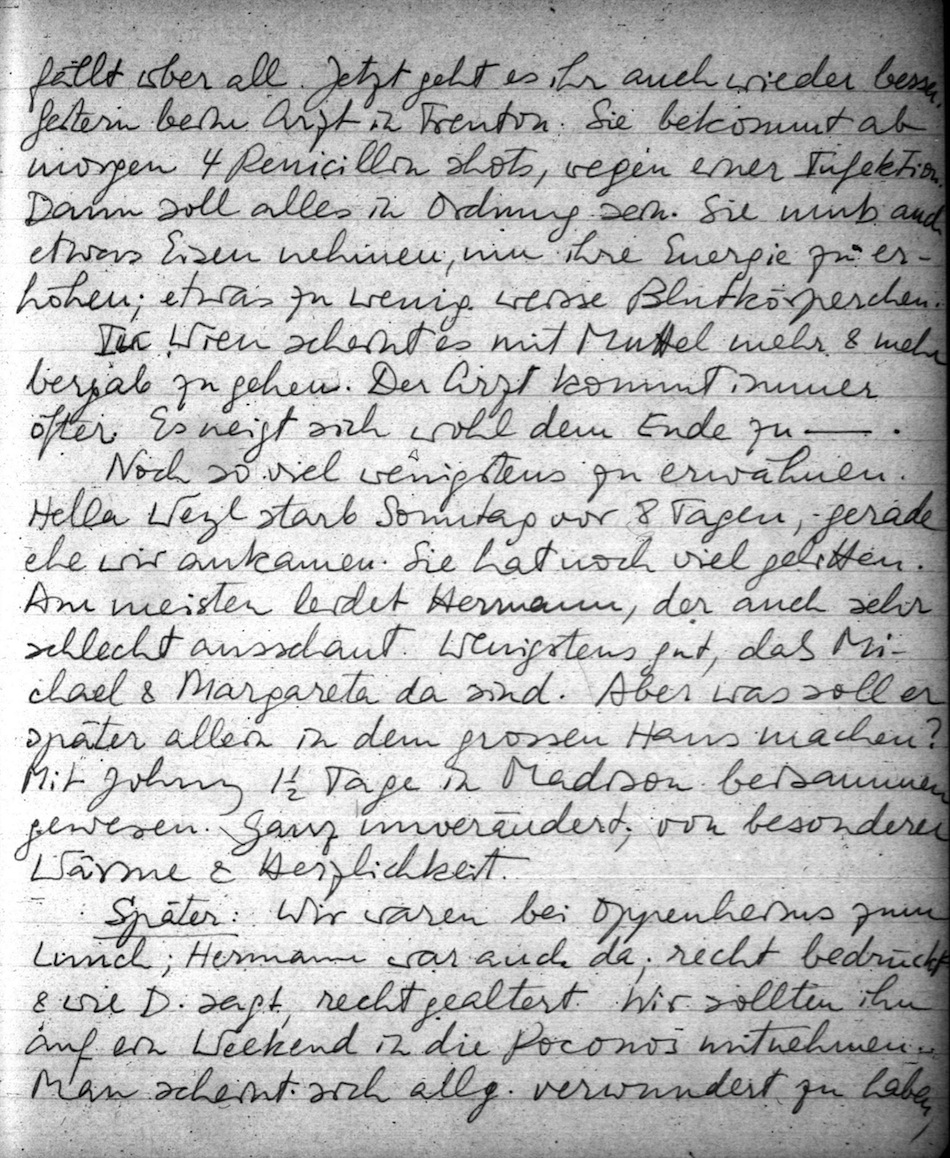 fällt über all. Jetzt geht es ihr auch wieder besser,
gestern beim Arzt in Trenton. Sie bekommt ab
morgen 4 Penicillin shots, wegen einer Infektion.
Dann soll alles in Ordnung sein. Sie muß auch
etwas Eisen nehmen, um ihre Energie zu er-
höhen; etwas zu wenig weisse Blutkörperchen.
In Wien scheint es mit Muttel mehr & mehr
bergab zu gehen. Der Arzt kommt immer
öfter. Es neigt sich wohl dem Ende zu —.
Noch so viel wenigstens zu erwähnen.
Hella Weyl starb Sonntag vor 8 Tagen, gerade
ehe wir ankamen. Sie hat noch viel gelitten.
Am meisten leidet Hermann, der auch sehr
schlecht ausschaut. Wenigstens gut, daß Mi-
chael & Margareta da sind. Aber was soll er
später allein in dem grossen Haus machen?
Mit Johnny 1½ Tage in Madison beisammen
gewesen. Ganz unverändert; von besonderer
Wärme & Herzlichkeit.
Später: Wir waren bei Oppenheims zum
Lunch; Hermann war auch da; recht bedrückt
& wie D. sagt, recht gealtert. Wir sollten ihn
auf ein Weekend in die Poconos mitnehmen..
Man scheint sich allg. verwundert zu haben,